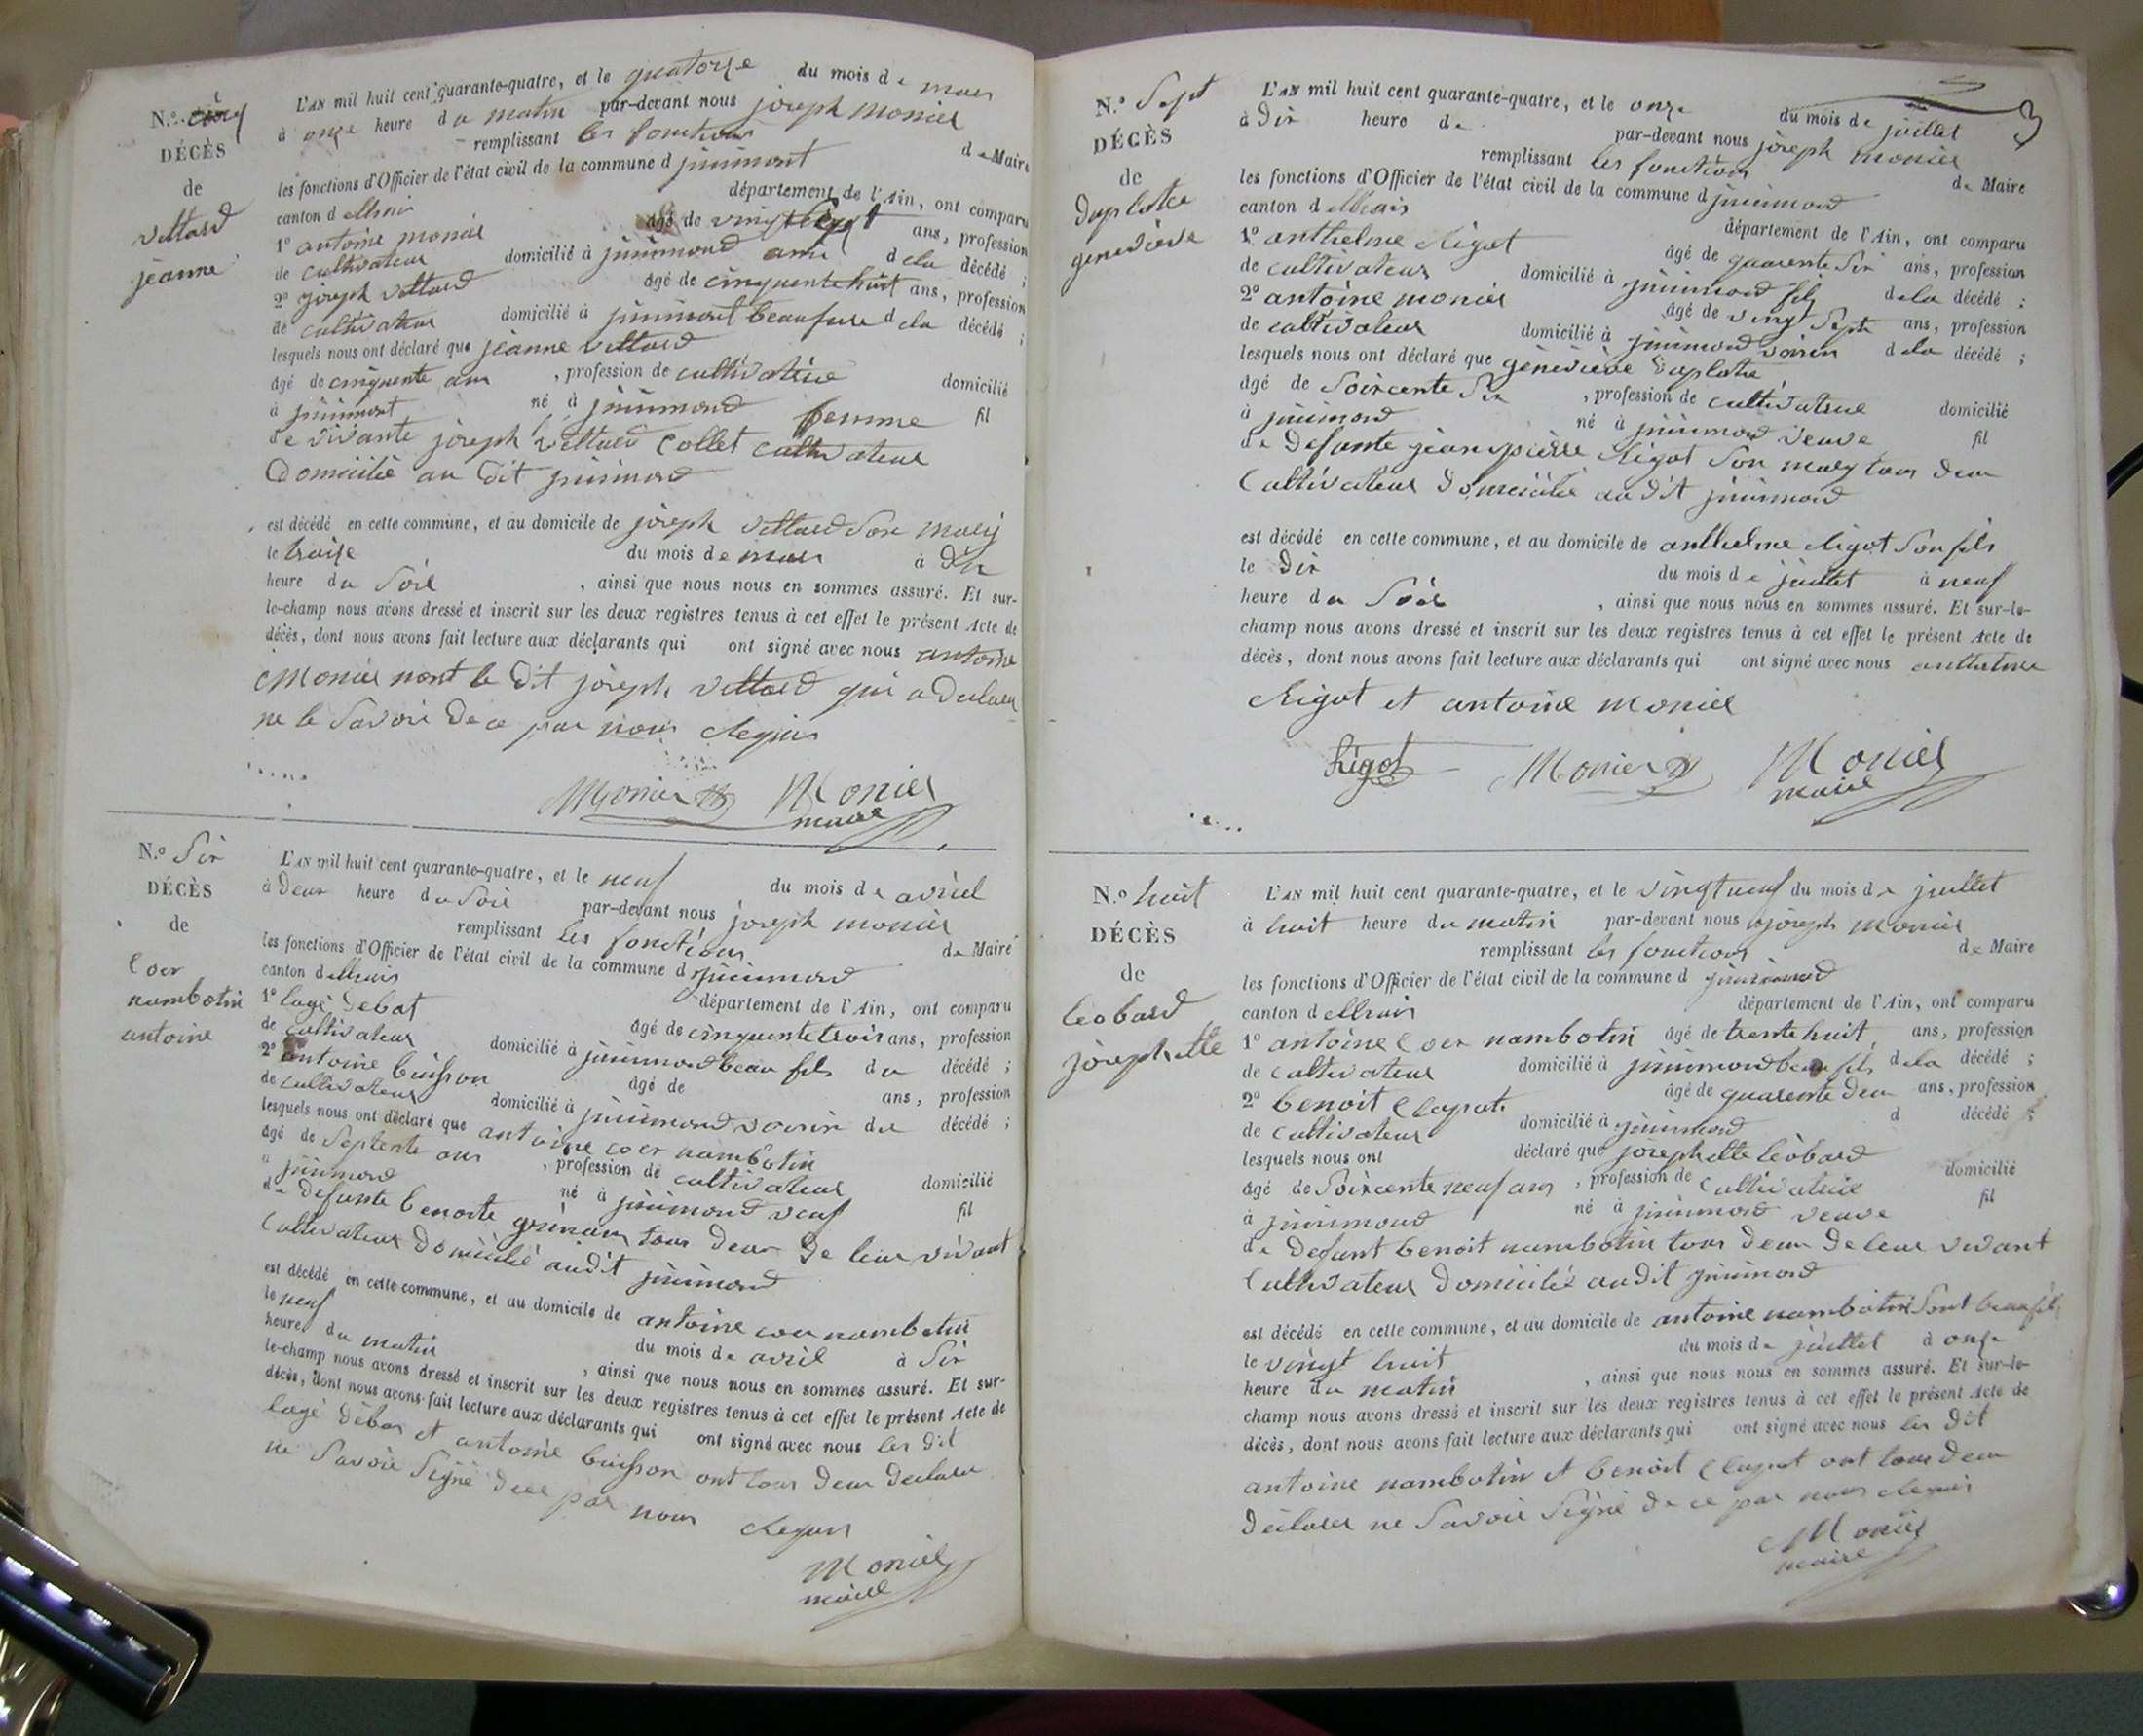 N.º cinq
DÉCÈS
de
vettard
jeanne
L'AN mil huit cent quarante-quatre, et le quatorze du mois de mars
à onze heure du matin par-devant nous joseph monier
remplissant les fonctions de Maire
les fonctions d'Officier de l'état civil de la commune d
canton d
département de l'Ain, ont comparu
1º antoine monier âgé de vingt sept ans, profession
de cultivateur domicilié à ami dela décédé ;
2º joseph vettard âgé de cinquente huit ans, profession
de cultivateur domicilié à beaufrere dela décédé ;
lesquels nous ont déclaré que jeanne vettard
âgé de cinquente ans , profession de cultivatrice domicilié
à né à femme fil
de vivante joseph vettard collet cultivateur
Domicilié au dit
est décédé en cette commune, et au domicile de joseph vettard son marij
le traize du mois de mars à dix
heure du soir , ainsi que nous nous en sommes assuré. Et sur-
le-champ nous avons dressé et inscrit sur les deux registres tenus à cet effet le présent Acte de
décès, dont nous avons fait lecture aux déclarants qui ont signé avec nous antoine
Monier le dit joseph vettard qui a
ne le savoir de ce par nous
Monier Monier
maire
N.º Six
DÉCÈS
de
coer
nambotin
antoine
L'AN mil huit cent quarante-quatre, et le neuf du mois de avriel
à deux heure du soir par-devant nous joseph monier
remplissant les fonctions de Maire
les fonctions d'Officier de l'état civil de la commune d
canton d
département de l'Ain, ont comparu
1º debat âgé de cinquente trois ans, profession
de cultivateur domicilié à beau fils du décédé ;
2º antoine buisson âgé de ans, profession
de cultivateur domicilié à voisin du décédé ;
lesquels nous ont déclaré que antoine coer nambotin
âgé de septente ans , profession de cultivateur domicilié
à né à veuf fil
de defunte benoite tous deux de leur vivant
cultivateur domicilié audit
est décédé en cette commune, et au domicile de antoine coer nambotin
le neuf du mois de avril à six
heure du matin , ainsi que nous nous en sommes assuré. Et sur-
le-champ nous avons dressé et inscrit sur les deux registres tenus à cet effet le présent Acte de
décès, dont nous avons fait lecture aux déclarants qui ont signé avec nous les dit
et antoine buisson ont tous deux
ne savoir signé de ce par nous
Monier
maire
3
N.º Sept
DÉCÈS
de
genevieve
L'AN mil huit cent quarante-quatre, et le onze du mois de juillet
à dix heure de par-devant nous joseph monier
remplissant les fonctions de Maire
les fonctions d'Officier de l'état civil de la commune d
canton d
département de l'Ain, ont comparu
1º anthelme Rigot âgé de quarente six ans, profession
de cultivateur domicilié à fils dela décédé ;
2º antoine monier âgé de vingt sept ans, profession
de cultivateur domicilié à voisin dela décédé ;
lesquels nous ont déclaré que genevieve
âgé de soixcente six , profession de cultivatrice domicilié
à né à veuve fil
de defunte jean pierre Rigot son marij tous deux
cultivateur domicilié audit
est décédé en cette commune, et au domicile de anthelme Rigot son fils
le dix du mois de juillet à neuf
heure du soir , ainsi que nous nous en sommes assuré. Et sur-le-
champ nous avons dressé et inscrit sur les deux registres tenus à cet effet le présent Acte de
décès, dont nous avons fait lecture aux déclarants qui ont signé avec nous anthelme
Rigot et antoine monier
Rigot Monier Monier
maire
N.º huit
DÉCÈS
de
leobard
josephette
L'AN mil huit cent quarante-quatre, et le vingt neuf du mois de juillet
à huit heure du matin par-devant nous joseph monier
remplissant les fonctions de Maire
les fonctions d'Officier de l'état civil de la commune d
canton d
département de l'Ain, ont comparu
1º antoine coer nambotin âgé de trente huit ans, profession
de cultivateur domicilié à beau fils dela décédé ;
2º benoit clapot âgé de quarente deux ans, profession
de cultivateur domicilié à d décédé ;
lesquels nous ont déclaré que josephette léobard
âgé de soixcente neuf ans , profession de cultivatrice domicilié
à né à veuve fil
de defunt benoit nambotin tous deux de leur vivant
cultivateur domicilié audit
est décédé en cette commune, et au domicile de antoine nambotin sont beau fils
le vingt huit du mois de juillet à onze
heure du matin , ainsi que nous nous en sommes assuré. Et sur-le-
champ nous avons dressé et inscrit sur les deux registres tenus à cet effet le présent Acte de
décès, dont nous avons fait lecture aux déclarants qui ont signé avec nous les dit
antoine nambotin et benoit clapot ont tous deux
declarer ne savoir signé de ce par nous
Monier
maire